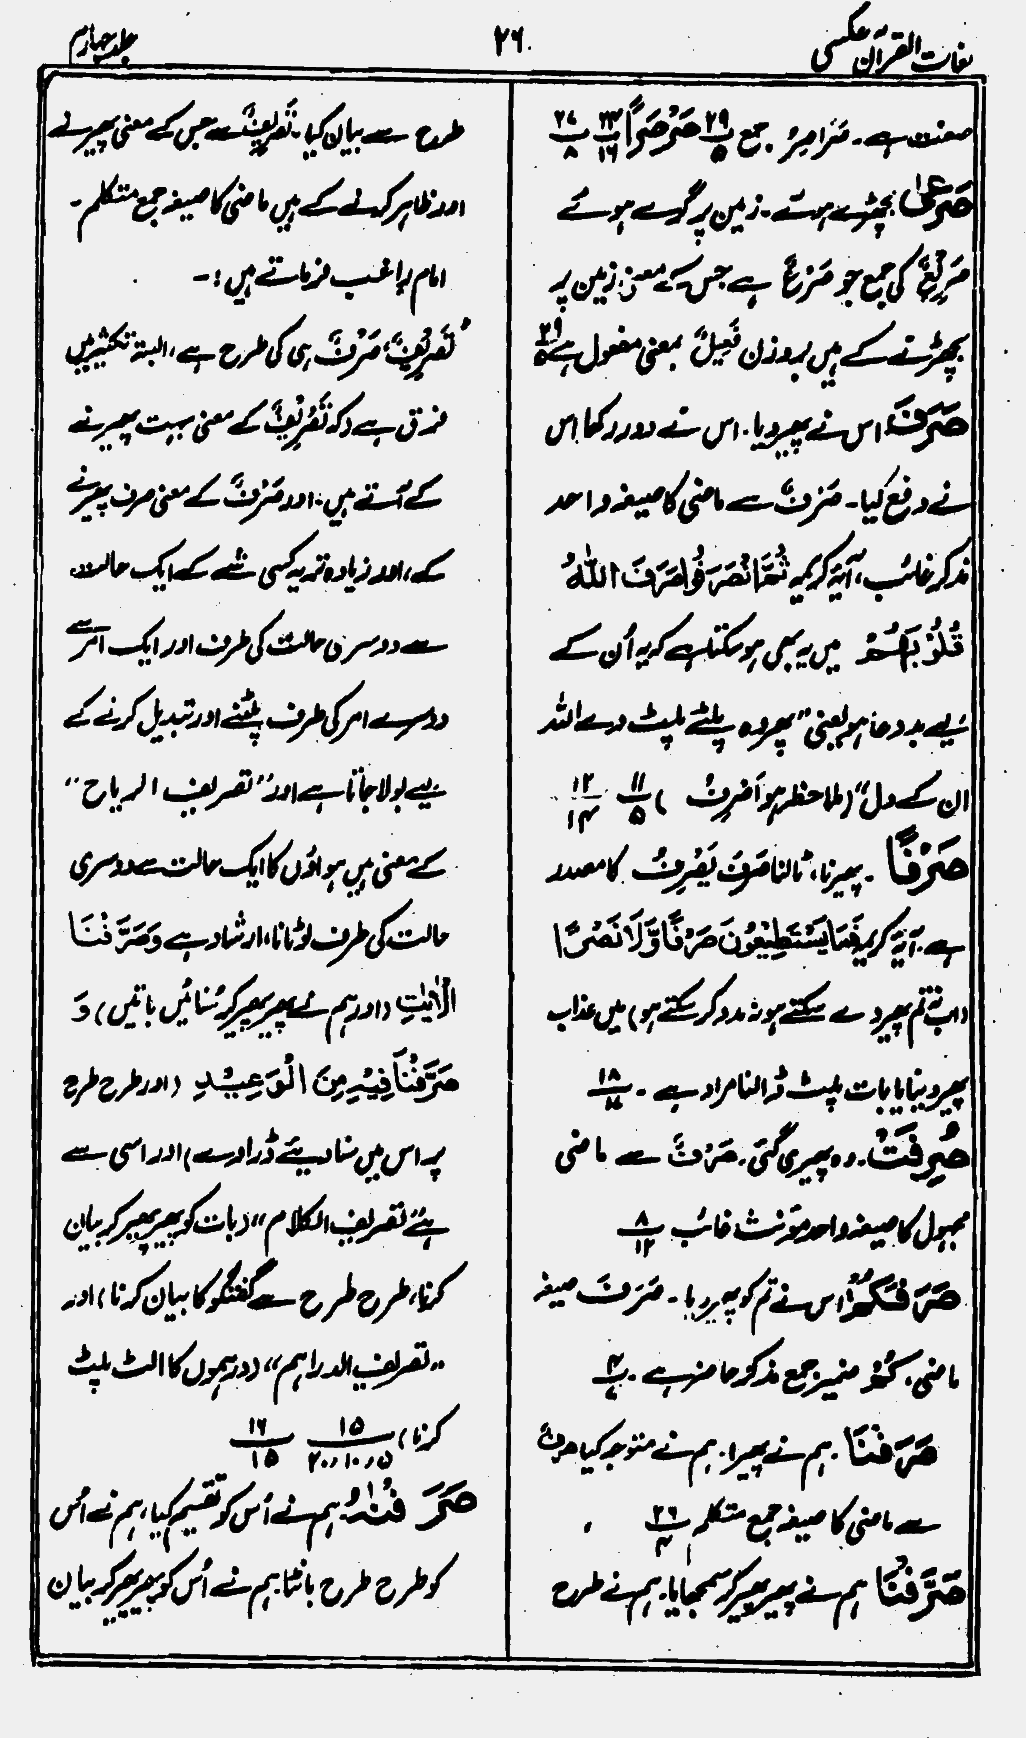 لغات القرآن عکسی
۲۶
جلد چہارم
صفت ہے۔ صَرَاصِرُ جمع ۲۹/۵ صَرْصَرًا ۲۴/۱۶ ۲۷/۸
صَرْعٰی بچھڑے ہوئے۔ زمین پر گرے ہوئے
صَرِیْعٌ کی جمع جو صَرْعٌ ہے جس کے معنی زمین پر
بچھڑنے کے ہیں بروزن فَعِیْلٌ بمعنی مفعول ہے ۲۹/۵
صَرَفَ اس نے پھیر دیا۔ اس نے دور رکھا اس
نے دفع کیا۔ صَرْفٌ سے ماضی کا صیغہ واحد
مذکر غائب، آیۂ کریمہ ثُمَّ انْصَرَفُوْا صَرَفَ اللّٰهُ
قُلُوْبَهُمْ میں یہ بھی ہو سکتا ہے کہ یہ اُن کے
لیے بد دعا ہو یعنی "پھر وہ پلٹے پلٹ دے اللہ
ان کے دل" (ملاحظہ ہو اَصْرِفُ) ۱۱/۵ ۱۲/۱۴
صَرْفًا۔ پھیرنا، ٹالنا صَرَفَ یَصْرِفُ کا مصدر
ہے۔ آیۂ کریمہ فَمَا یَسْتَطِیْعُوْنَ صَرْفًا وَّلَا نَصْرًا
(اب نہ تم پھیر دے سکتے ہو نہ مدد کر سکتے ہو) میں عذاب
پھیر دینا یا بات پلٹ ڈالنا مراد ہے۔ ۱۸/۱۷
صُرِفَتْ۔ وہ پھیری گئی۔ صَرْفٌ سے ماضی
مجہول کا صیغہ واحد مؤنث غائب ۸/۱۲
صَرَفَکُمْ اس نے تم کو پھیر دیا۔ صَرَفَ صیغہ
ماضی، کُمْ ضمیر جمع مذکر حاضر ہے۔ ۴/۷
صَرَفْنَا۔ ہم نے پھیرا۔ ہم نے متوجہ کیا صرفٌ
سے ماضی کا صیغہ جمع متکلم ۲۶/۴
صَرَّفْنَا ہم نے پھیر پھیر کر سمجھایا۔ ہم نے طرح
طرح سے بیان کیا۔ تَصْرِیْفٌ سے جس کے معنی پھیرنے
اور ظاہر کرنے کے ہیں ماضی کا صیغہ جمع متکلم۔
امام راغب فرماتے ہیں:۔
تَصْرِیْفٌ، صَرْفٌ ہی کی طرح ہے، البتہ تکثیر میں
فرق ہے (کہ تَصْرِیْفٌ کے معنی بہت پھیرنے
کے آتے ہیں، اور صَرْفٌ کے معنی صرف پھیرنے
کے، اور زیادہ تر یہ کسی شے کے ایک حالت
سے دوسری حالت کی طرف اور ایک امر سے
دوسرے امر کی طرف پلٹنے اور تبدیل کرنے کے
لیے بولا جاتا ہے اور "تصریف الریاح"
کے معنی ہیں ہواؤں کا ایک حالت سے دوسری
حالت کی طرف لوٹانا، ارشاد ہے وَصَرَّفْنَا
الْاٰیٰتِ (اور ہم نے پھیر پھیر کر سُنائیں باتیں) وَ
صَرَّفْنَا فِیْهِ مِنَ الْوَعِیْدِ (اور طرح طرح
پر اس میں سنا دیئے ڈراوے) اور اسی سے
ہے "تصریف الکلام" (بات کو پھیر پھیر کر بیان
کرنا، طرح طرح سے گفتگو کا بیان کرنا) اور
"تصریف الدراہم" (درہموں کا الٹ پلٹ
کرنا) ۱۵/۵، ۱۰، ۲۰ ۱۶/۱۵
صَرَّفْنٰهُ۔ ہم نے اُس کو تقسیم کیا، ہم نے اُس
کو طرح طرح بانٹا۔ ہم نے اُس کو پھیر پھیر کر بیان